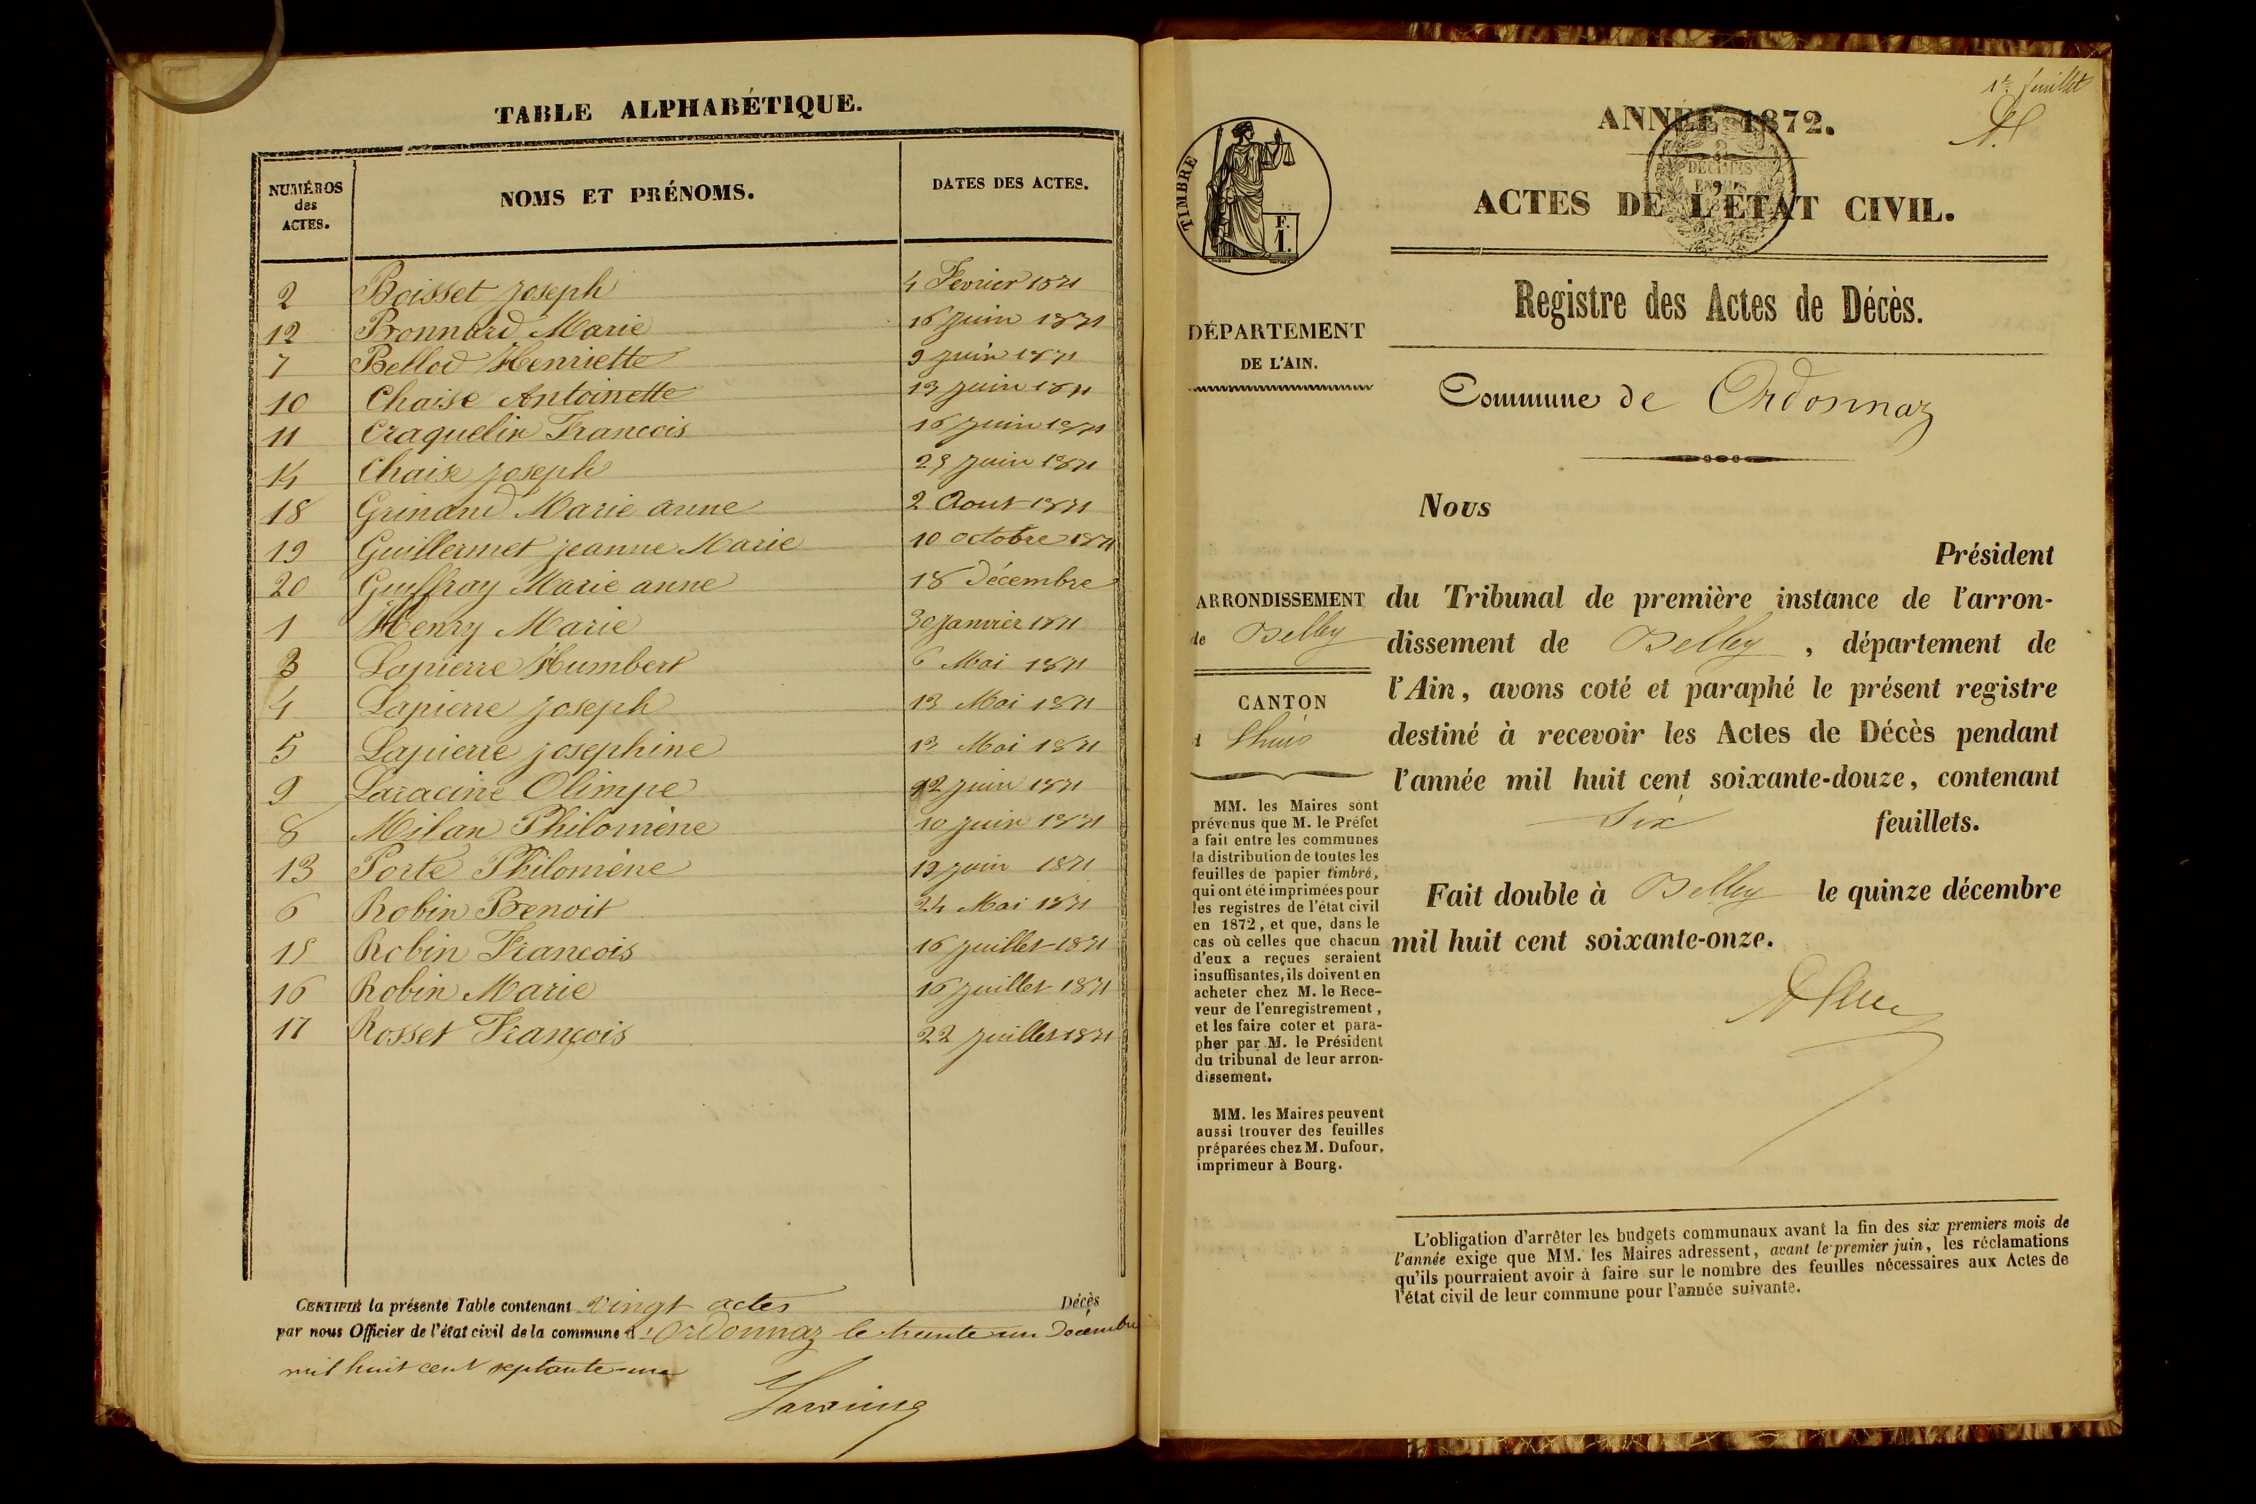 TABLE ALPHABÉTIQUE.
NUMÉROS des ACTES. NOMS ET PRÉNOMS. DATES DES ACTES.
2 Boisset Joseph 4 Fevrier 1871
12 Bonnard Marie 16 juin 1871
7 Bellod Henriette 9 juin 1871
10 Chaise Antoinette 13 juin 1871
11 Craquelin Francois 16 juin 1871
14 Chaise Joseph 29 juin 1871
18 Grinand Marie anne 2 Aout 1871
19 Guillermet jeanne Marie 10 octobre 1871
20 Guiffray Marie anne 18 Décembre
1 Henry Marie 30 Janvier 1871
3 Lapierre Humbert 6 Mai 1871
4 Lapierre Joseph 13 Mai 1871
5 Lapierre josephine 13 Mai 1871
9 Laracine Olimpe 12 juin 1871
8 Milan Philomène 10 juin 1871
13 Porte Philomène juin 1871
6 Robin Benoit 24 Mai 1871
15 Robin Francois 16 juillet 1871
16 Robin Marie 16 juillet 1871
17 Rosset François 22 juillet 1871
CERTIFIÉ la présente Table contenant vingt actes Décès
par nous Officier de l'état civil de la commune d'Ordonnaz le trente un Décembre
mil huit cent septante-un
1er feuillet
ANNÉE 1872.
2 DÉCIMES EN SUS
ACTES DE L'ÉTAT CIVIL.
TIMBRE
F. 1.
Registre des Actes de Décès.
DÉPARTEMENT
DE L'AIN.
Commune de Ordonnaz
ARRONDISSEMENT
de Belley
CANTON
d Lhuis
MM. les Maires sont
prévenus que M. le Préfet
a fait entre les communes
la distribution de toutes les
feuilles de papier timbré,
qui ont été imprimées pour
les registres de l'état civil
en 1872, et que, dans le
cas où celles que chacun
d'eux a reçues seraient
insuffisantes, ils doivent en
acheter chez M. le Rece-
veur de l'enregistrement,
et les faire coter et para-
pher par M. le Président
du tribunal de leur arron-
dissement.
MM. les Maires peuvent
aussi trouver des feuilles
préparées chez M. Dufour,
imprimeur à Bourg.
Nous
Président
du Tribunal de première instance de l'arron-
dissement de Belley, département de
l'Ain, avons coté et paraphé le présent registre
destiné à recevoir les Actes de Décès pendant
l'année mil huit cent soixante-douze, contenant
Six feuillets.
Fait double à Belley le quinze décembre
mil huit cent soixante-onze.
L'obligation d'arrêter les budgets communaux avant la fin des six premiers mois de
l'année exige que MM. les Maires adressent, avant le premier juin, les réclamations
qu'ils pourraient avoir à faire sur le nombre des feuilles nécessaires aux Actes de
l'état civil de leur commune pour l'année suivante.